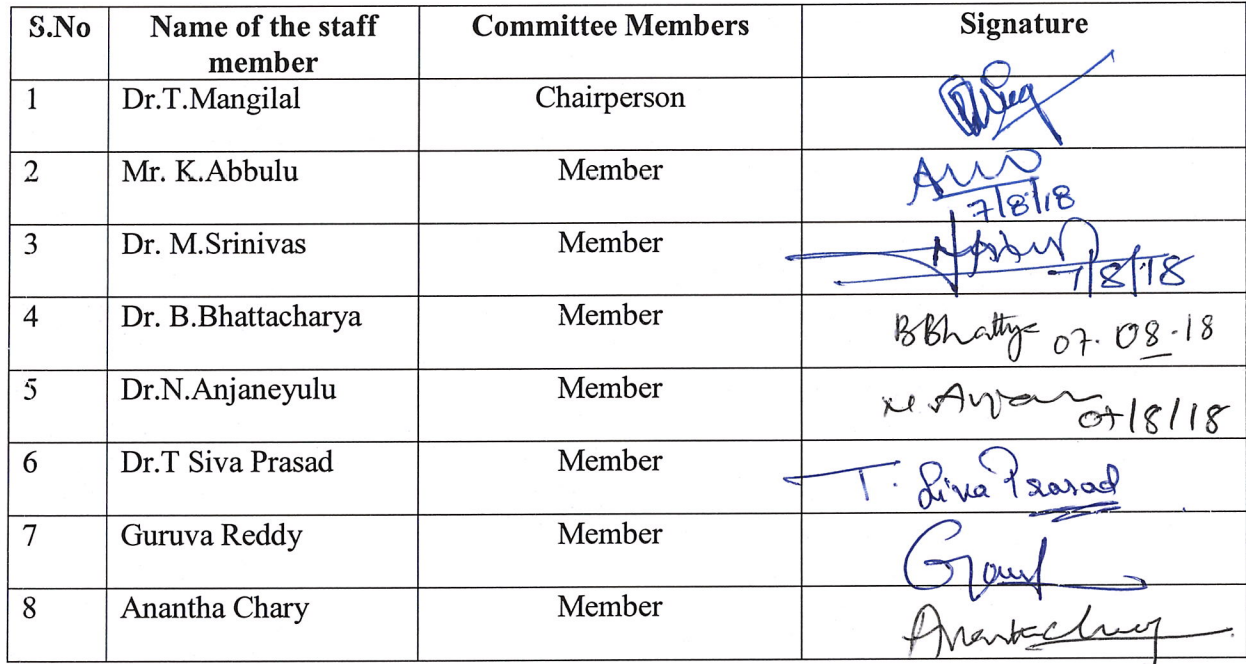 S.No Name of the staff member Committee Members Signature
1 Dr.T.Mangilal Chairperson
2 Mr. K.Abbulu Member
7/8/18
3 Dr. M.Srinivas Member
7/8/18
4 Dr. B.Bhattacharya Member 07.08.18
5 Dr.N.Anjaneyulu Member 07/8/18
6 Dr.T Siva Prasad Member T. Siva Prasad
7 Guruva Reddy Member
8 Anantha Chary Member